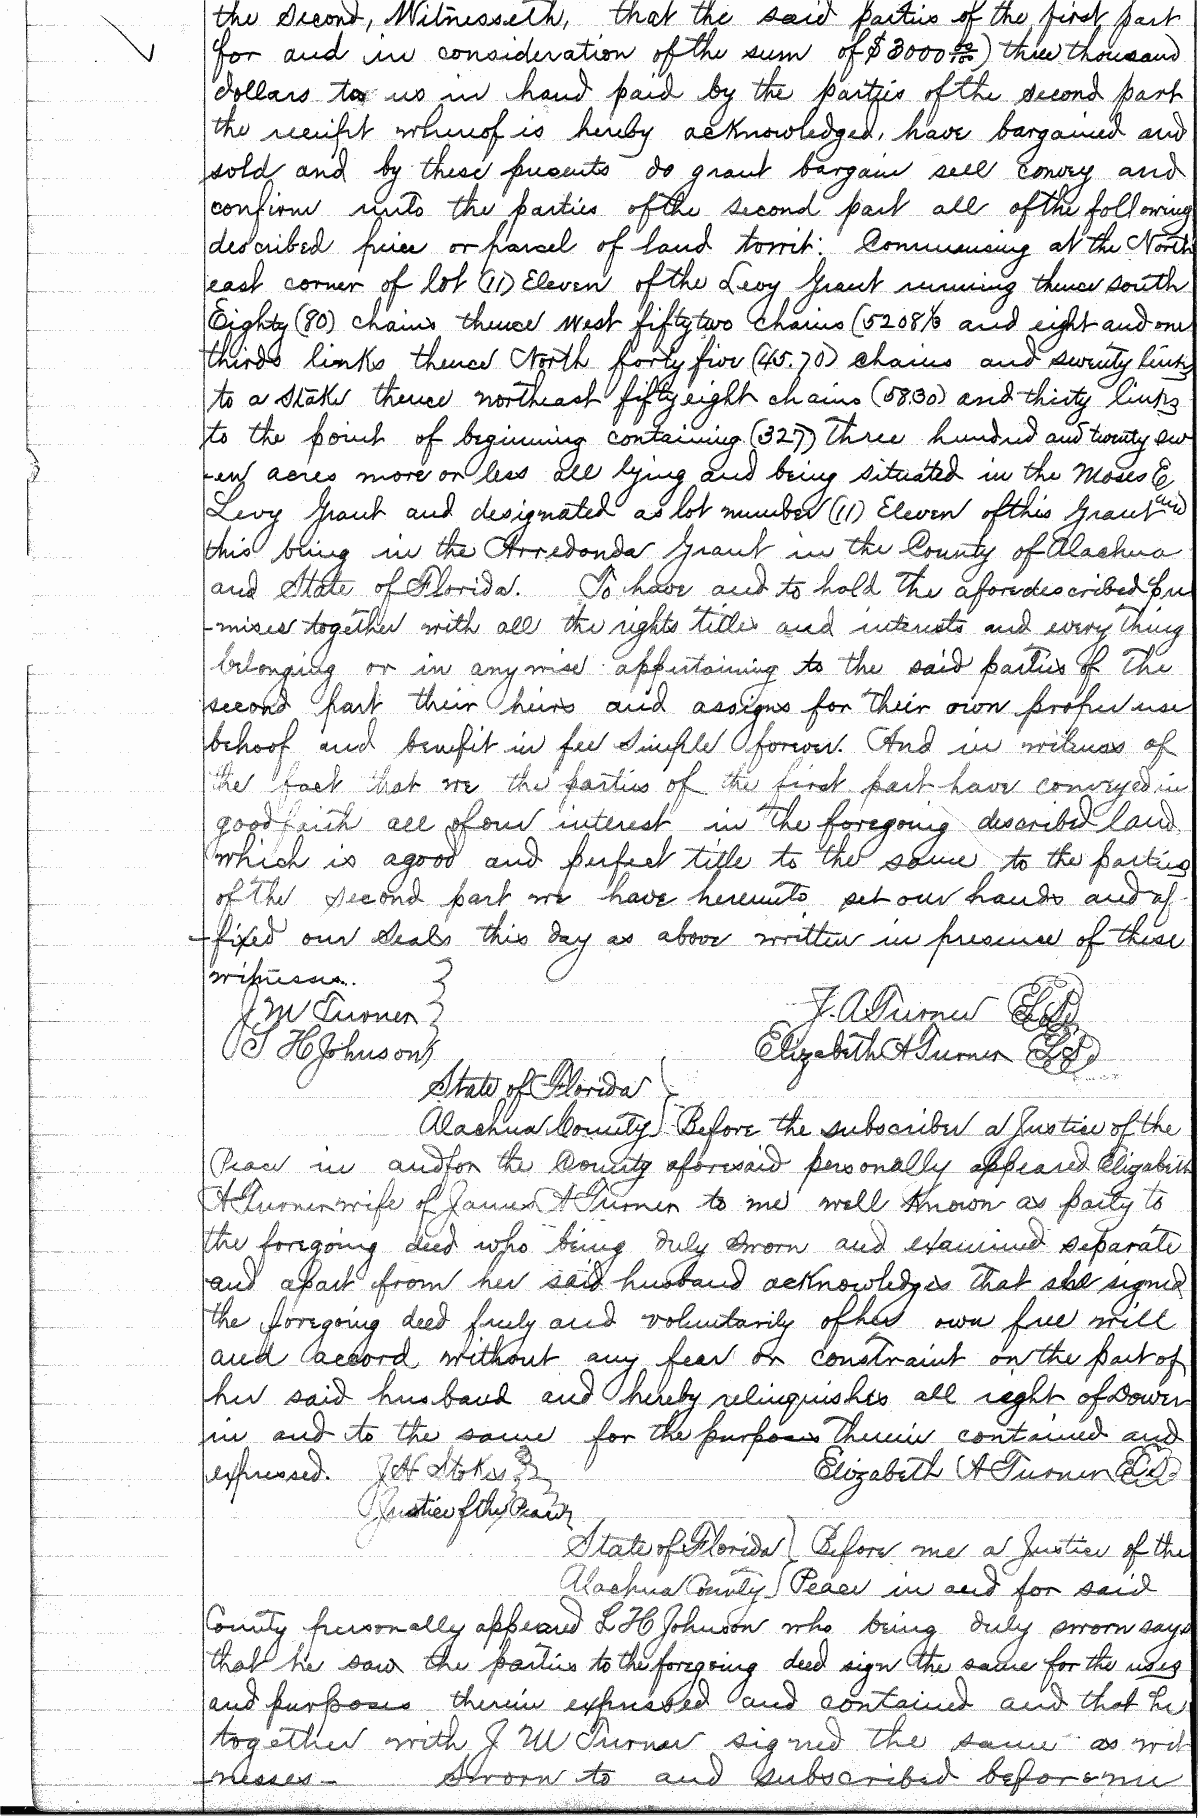 the Second, Witnesseth, that the said parties of the first part
for and in consideration of the sum of $3000 00/100) three thousand
dollars to us in hand paid by the parties of the second part
the receipt whereof is hereby acknowledged, have bargained and
sold and by these presents do grant bargain sell convey and
confirm unto the parties of the second part all of the following
described piece or parcel of land towit: Commencing at the North
east corner of lot (11) Eleven of the Levy Grant running thence south
Eighty (80) chains thence West fiftytwo chains (5208⅓ and eight and one
thirds links thence North forty five (45.70) chains and seventy links
to a Stake thence northeast fifty eight chains (5830) and thirty links
to the point of beginning containing (327) three hundred and twenty sev
-en acres more or less all lying and being situated in the Moses E
Levy Grant and designated as lot number (11) Eleven of this Grant and
this being in the Arredonda Grant in the County of Alachua
and State of Florida. To have and to hold the aforedescribed pre
-mises together with all the rights titles and interests and every thing
belonging or in anywise appertaining to the said parties of the
second part their heirs and assigns for their own proper use
behoof and benefit in fee simple forever. And in witness of
the fact that we the parties of the first part have conveyed in
good faith all of our interest in the foregoing described land
which is a good and perfect title to the same to the parties
of the second part we have hereunto set our hands and af-
-fixed our Seals this day as above written in presence of these
witnesses.
J M Turner J. A Turner L.S.
S H Johnson Elizabeth A Turner L.S.
State of Florida
Alachua County Before the subscriber a Justice of the
Peace in and for the County aforesaid personally appeared Elizabeth
A Turner wife of James A Turner to me well Known as party to
the foregoing deed who being duly sworn and examined separate
and apart from her said husband acknowledges that she signed
the foregoing deed freely and voluntarily of her own free will
and accord without any fear or constraint on the part of
her said husband and hereby relinquishes all right of Dower
in and to the same for the purposes therein contained and
expressed. J H Stokes Elizabeth A Turner L.S.
Justice of the Peace
State of Florida Before me a Justice of the
Alachua County Peace in and for said
County personally appeared S H Johnson who being duly sworn says
that he saw the parties to the foregoing deed sign the same for the uses
and purposes therein expressed and contained and that he
together with J M Turner signed the same as wit
-nesses- Sworn to and subscribed before me